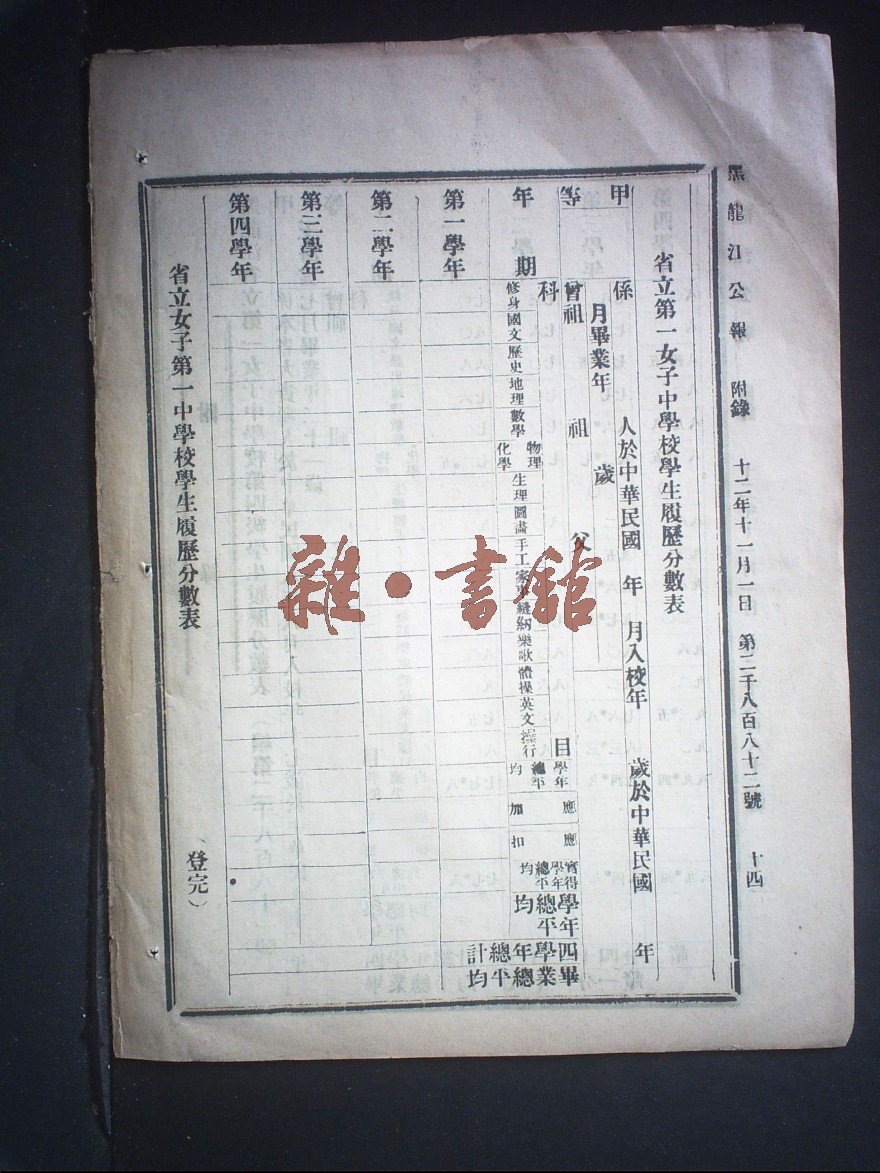 黑龍江公報 附錄 十二年十一月一日 第二千八百八十二號 十四
省立第一女子中學校學生履歷分數表
甲等
係 人於中華民國 年 月入校年 歲於中華民國 年
月畢業年 歲
曾祖 祖 父
年期
科目
修身
國文
歷史
地理
數學
物理
化學
生理
圖畫
手工
家事
縫紉
樂歌
體操
英文
操行
學年總平均
應加
應扣
實得學年總平均
學年總平均
四學年總計
畢業總平均
第一學年
第二學年
第三學年
第四學年
省立女子第一中學校學生履歷分數表 （登完）
雜·書館